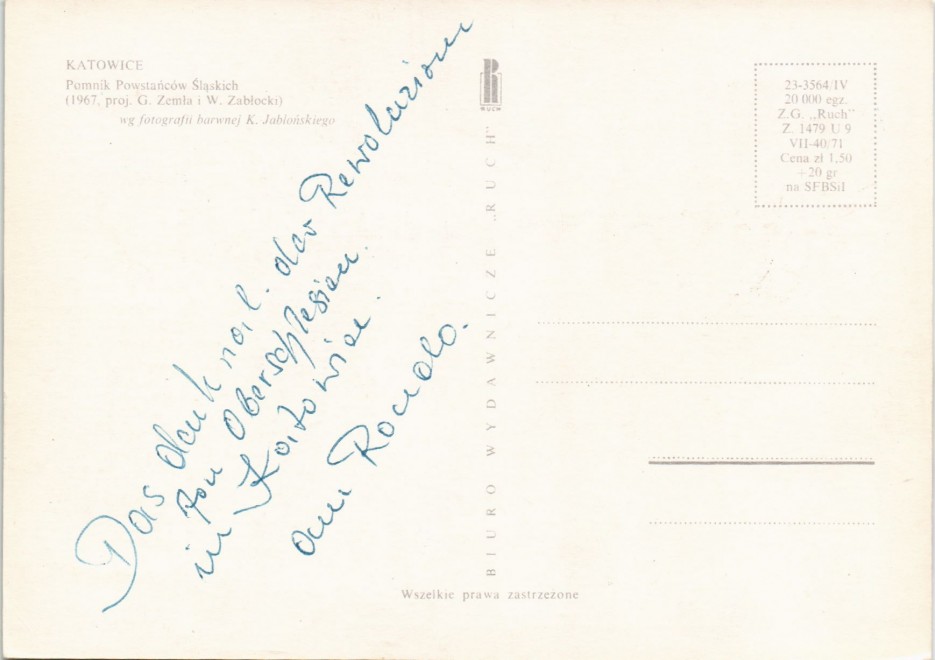 KATOWICE
Pomnik Powstańców Śląskich
(1967, proj. G. Zemła i W. Zabłocki)
wg fotografii barwnej K. Jabłońskiego
RUCH
BIURO WYDAWNICZE „RUCH"
23-3564/IV
20 000 egz.
Z.G. „Ruch"
Z. 1479 U 9
VII-40/71
Cena zł 1,50
+20 gr
na SFBSiI
Das denk mal. der Rewoluzion
fon Oberschlesien.
in Katowice.
am Rondo.
Wszelkie prawa zastrzeżone